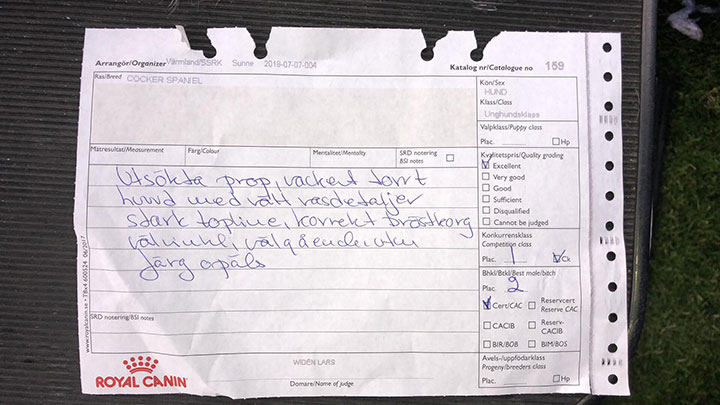 Arrangör/Organizer Värmland/SSRK Sunne 2018-07-07-004
Katalog nr/Catalogue no 159
Ras/Breed COCKER SPANIEL
Kön/Sex
HUND
Klass/Class
Unghundsklass
Valpklass/Puppy class
Plac. Hp
Mätresultat/Measurement Färg/Colour Mentalitet/Mentality SRD notering
BSI notes
Kvalitetspris/Quality grading
Excellent
Very good
Good
Sufficient
Disqualified
Cannot be judged
Utsökta prop, vackert torrt
hund med rätt rasdetaljer
stark topline, korrekt bröstkorg
välvinkl, välgående
färg o päls
Konkurrensklass
Competition class
Plac. 1 Ck
Bhkl/Btkl/Best male/bitch
Plac. 2
Cert/CAC Reservcert
Reserve CAC
CACIB Reserv-
CACIB
BIR/BOB BIM/BOS
Avels-/uppfödarklass
Progeny/breeders class
Plac. Hp
SRD notering/BSI notes
www.royalcanin.se • TBx4 600524 06/2017
ROYAL CANIN
WIDEN LARS
Domare/Name of judge